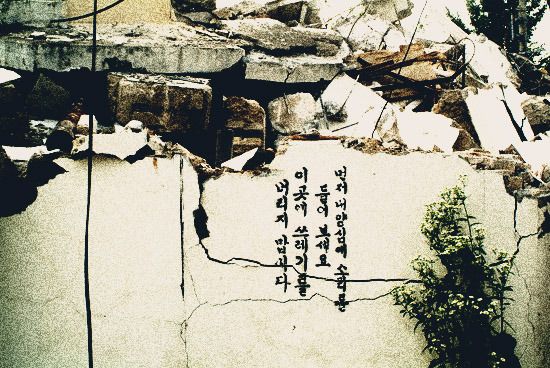 먼저 내 양심에 소리를
들어 보세요
이곳에 쓰레기를
버리지 맙시다